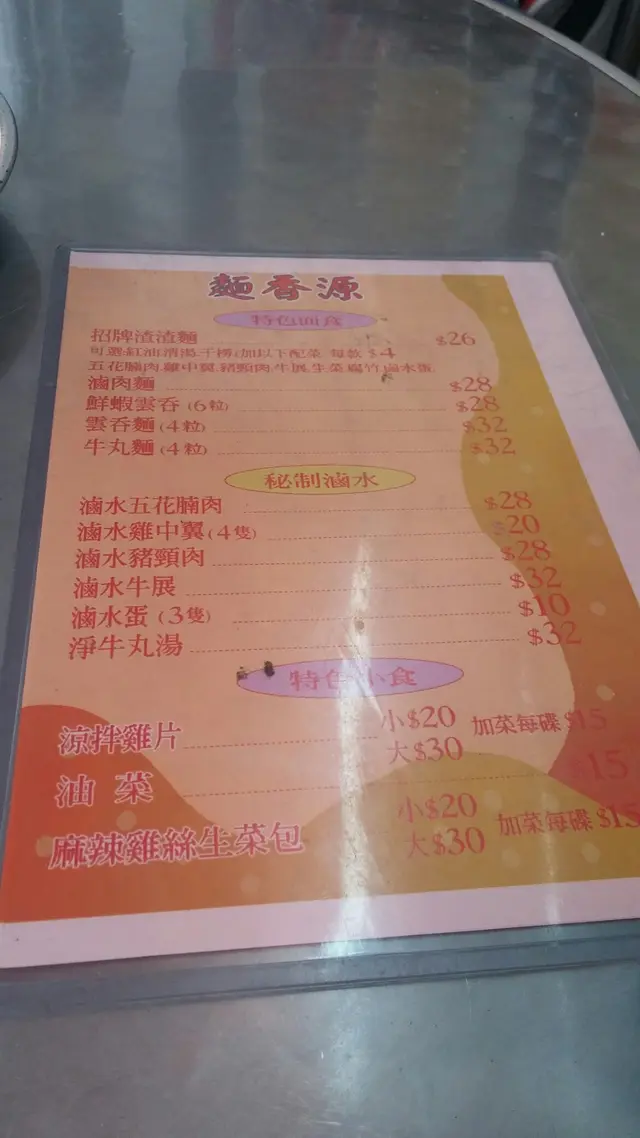 麵香源
特色面食
招牌渣渣麵 $26
可選:紅油清湯干撈(加以下配菜 每款 $4
五花腩肉.雞中翼.豬頸肉.牛展.生菜.腐竹.鹵水蛋
滷肉麵 $28
鮮蝦雲吞 (6粒) $28
雲吞麵 (4粒) $32
牛丸麵 (4粒) $32
秘制滷水
滷水五花腩肉 $28
滷水雞中翼 (4隻) $20
滷水豬頸肉 $28
滷水牛展 $32
滷水蛋 (3隻) $10
淨牛丸湯 $32
特色小食
涼拌雞片 小$20 加菜每碟 $15
大$30
油菜 $15
麻辣雞絲生菜包 小$20 加菜每碟 $15
大$30